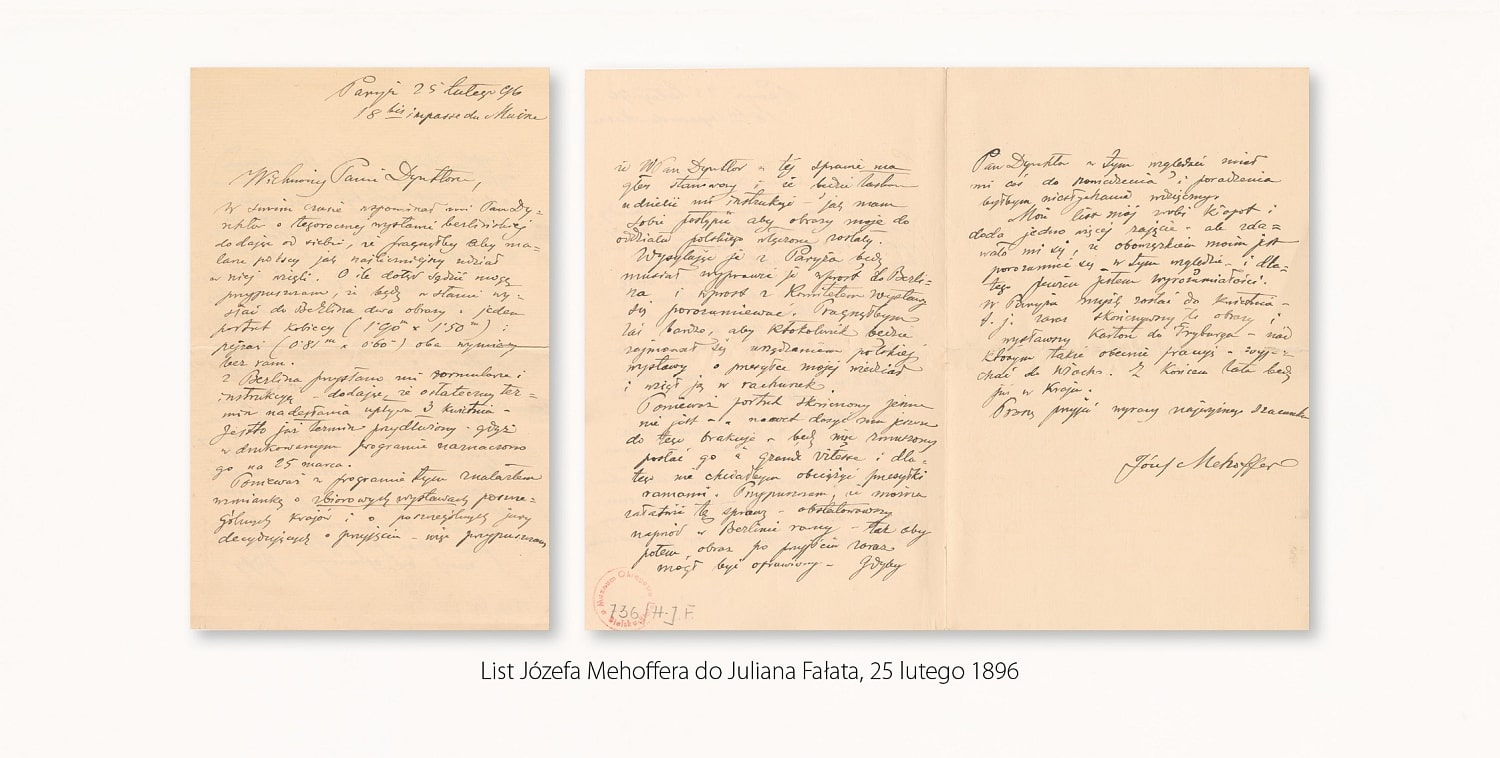 Paryż 25 lutego 96
18 bis impasse du Maine
Wielmożny Panie Dyrektorze,
W swoim czasie wspominał mi Pan Dy-
rektor o tegorocznej wystawie berlińskiej
dodając od siebie, że pragnąłby aby ma-
larze polscy jak najliczniejszy udział
w niej wzięli. O ile dotąd sądzić mogę
przypuszczam, iż będę w stanie wy-
słać do Berlina dwa obrazy: jeden
portret kobiecy (1·90 m x 1·50 m) i
pejzaż (0·81 m x 0·60) oba wymiary
bez ram.
Z Berlina przysłano mi formularze i
instrukcyę - dodając, że ostateczny ter-
min nadesłania upływa 3 kwietnia -
Jestto już termin przydłużony - gdyż
w drukowanym programie naznaczono
go na 25 marca.
Ponieważ w programie tym znalazłem
wzmiankę o zbiorowych wystawach poszcze-
gólnych krajów i o poszczególnych jury
decydujących o przyjęciu - więc przypuszczam
iż WPan Dyrektor w tej sprawie ma
głos stanowczy i że będzie łaskaw
udzielić mi instrukcyi - jak mam
sobie postąpić aby obrazy moje do
oddziału polskiego włączone zostały.
Wysyłając je z Paryża będę
musiał wyprawić je wprost do Berli-
na i wprost z Komitetem wystawy
się porozumiewać. Pragnąłbym
zaś bardzo, aby ktokolwiek będzie
zajmował się urządzaniem polskiej
wystawy o przesyłce mojej wiedział
i wziął ją w rachunek.
Ponieważ portret skończony jeszcze
nie jest - a nawet dosyć mu jeszcze
do tego brakuje - będę więc zmuszony
posłać go à grande vitesse i dla-
tego nie chciałbym obciążyć przesyłki
ramami. Przypuszczam, iż można
załatwić tę sprawę - obstalowawszy
naprzód w Berlinie ramy - tak aby
potem obraz po przyjęciu zaraz
mógł być oprawiony - Gdyby
Pan Dyrektor w tym względzie miał
mi coś do powiedzenia i poradzenia
byłbym niewymownie wdzięczny.
Może list mój zrobi kłopot i
doda jedno więcej zajęcie - ale zda-
wało mi się, iż obowiązkiem moim jest
porozumieć się w tym względzie - i dla-
tego pewien jestem wyrozumiałości.
W Paryżu myślę zostać do kwietnia -
t. j. zaraz skończywszy te obrazy i
wysławszy karton do Fryburga - nad
którym także obecnie pracuję - wyje-
chać do Włoch. Z końcem lata będę
już w kraju.
Proszę przyjąć wyrazy najwyższego szacunku
Józef Mehoffer
Muzeum Okręgowe
w Bielsku
736 [H-] F.
List Józefa Mehoffera do Juliana Fałata, 25 lutego 1896